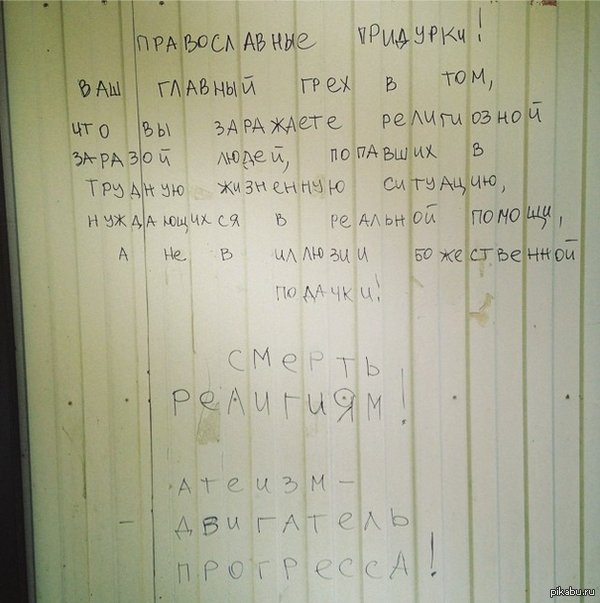 ПРАВОСЛАВНЫЕ ПРИДУРКИ!
ВАШ ГЛАВНЫЙ ГРЕХ В ТОМ,
ЧТО ВЫ ЗАРАЖАЕТЕ РЕЛИГИОЗНОЙ
ЗАРАЗОЙ ЛЮДЕЙ, ПОПАВШИХ В
ТРУДНУЮ ЖИЗНЕННУЮ СИТУАЦИЮ,
НУЖДАЮЩИХСЯ В РЕАЛЬНОЙ ПОМОЩИ,
А НЕ В ИЛЛЮЗИИ БОЖЕСТВЕННОЙ
ПОДАЧКИ!
СМЕРТЬ
РЕЛИГИЯМ!
АТЕИЗМ –
– ДВИГАТЕЛЬ
ПРОГРЕССА!
pikabu.ru